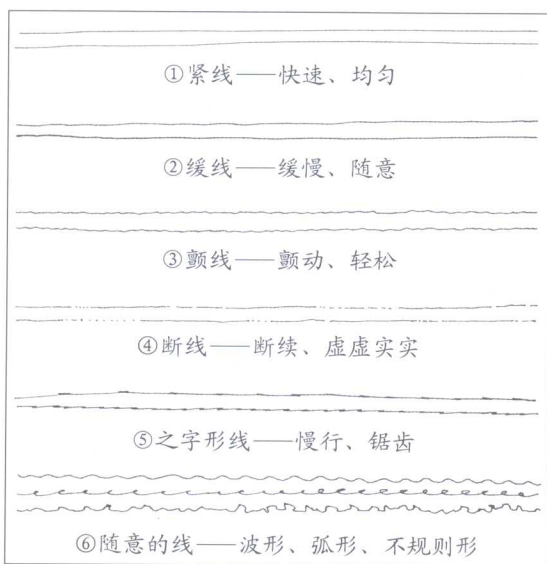 ①紧线——快速、均匀
②缓线——缓慢、随意
③颤线——颤动、轻松
④断线——断续、虚虚实实
⑤之字形线——慢行、锯齿
⑥随意的线——波形、弧形、不规则形